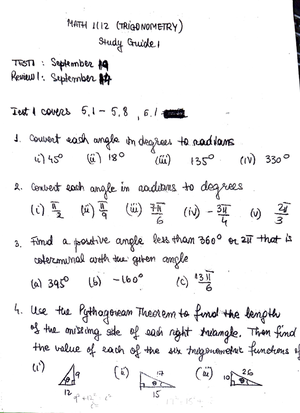 MATH 1112 (TRIGONOMETRY)
Study Guide 1
TEST 1 : September 19
Review 1 : September 17
Test 1 covers 5.1 - 5.8, 6.1
1. Convert each angle in degrees to radians
(i) 45° (ii) 18° (iii) 135° (iv) 330°
2. Convert each angle in radians to degrees
(i) π/2 (ii) π/9 (iii) 7π/6 (iv) -3π/4 (v) 2π/3
3. Find a positive angle less than 360° or 2π that is
coterminal with the given angle
(a) 395° (b) -160° (c) 13π/6
4. Use the Pythagorean Theorem to find the length
of the missing side of each right triangle. Then find
the value of each of the six trigonometric functions of
(i) 9 θ 12 (ii) 17 θ 15 (iii) 10 26 θ